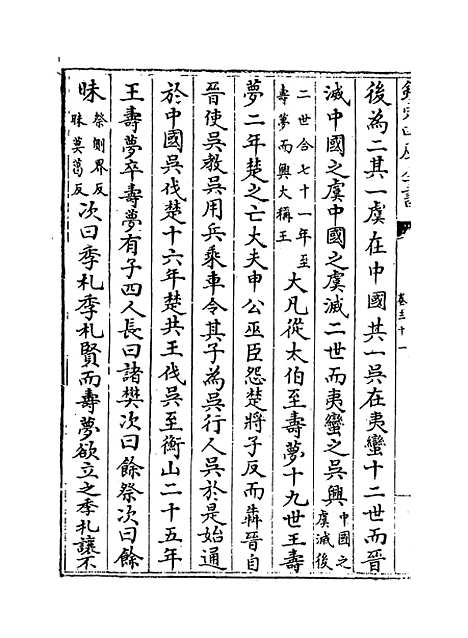 欽定四庫全書
卷三十一
後為二其一虞在中國其一吳在夷蠻十二世而晉
滅中國之虞中國之虞滅二世而夷蠻之吳興中國之虞滅後
二世合七十一年至壽夢而興大稱王大凡從太伯至壽夢十九世王壽
夢二年楚之亡大夫申公巫臣怨楚將子反而犇晉自
晉使吳教吳用兵乘車令其子為吳行人吳於是始通
於中國吳伐楚十六年楚共王伐吳至衡山二十五年
王壽夢卒壽夢有子四人長曰諸樊次曰餘祭次曰餘
昧祭側界反昧莫葛反次曰季札季札賢而壽夢欲立之季札讓不